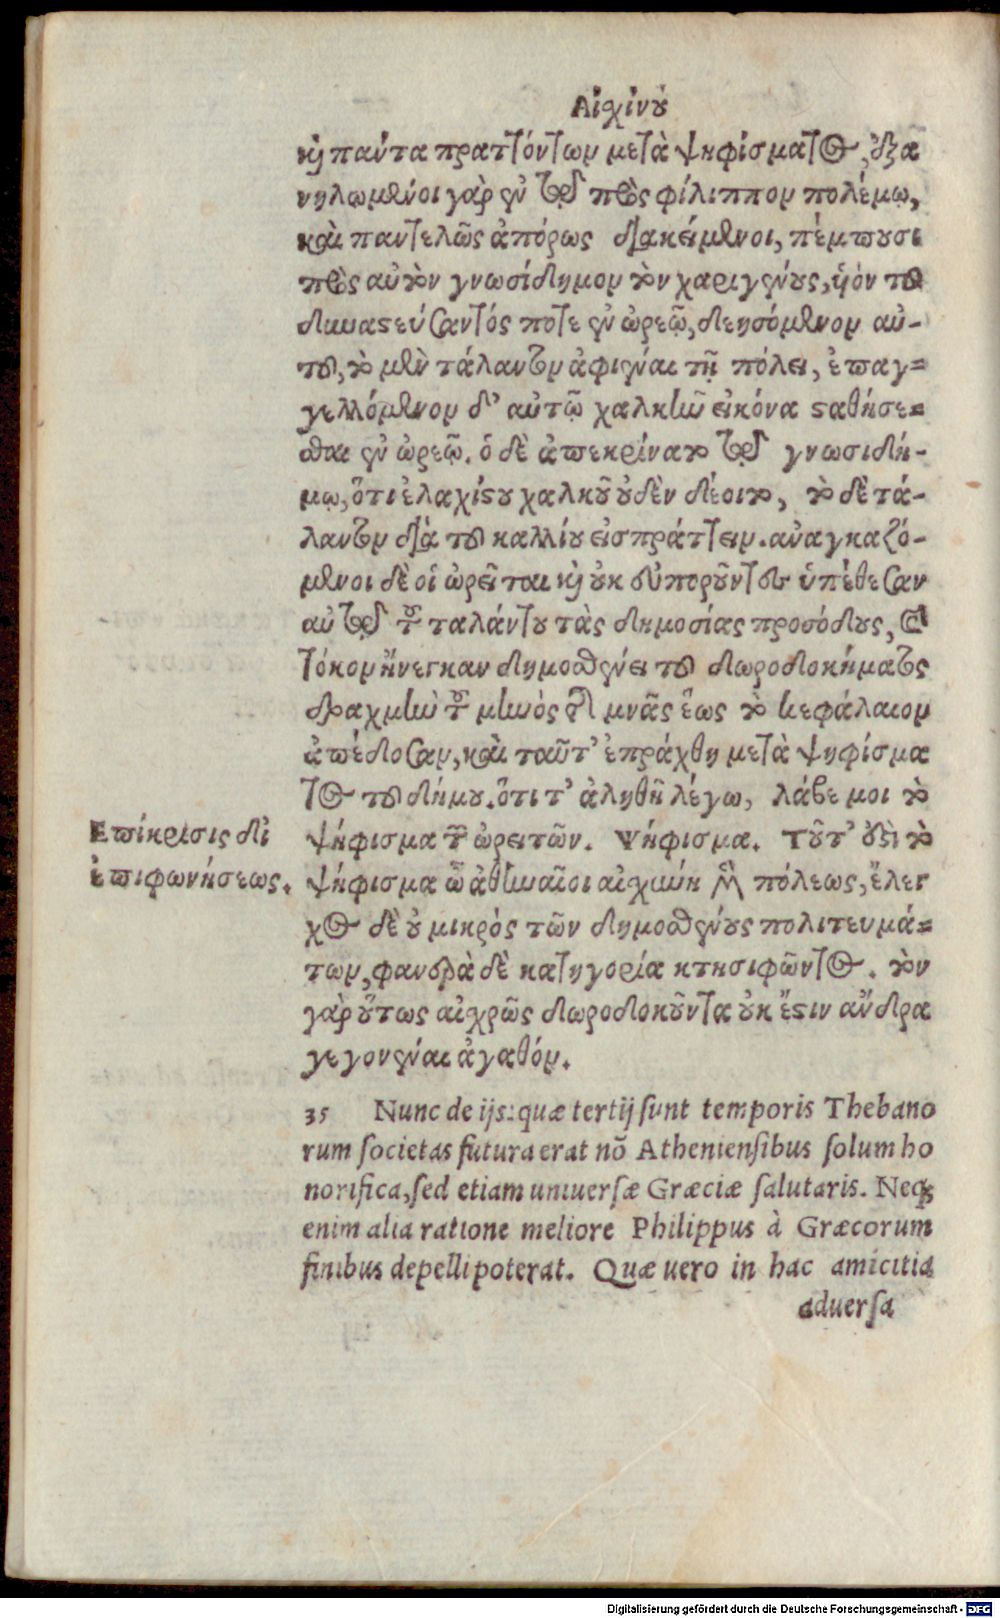 Αἰχίνου
καὶ πάντα πραττόντων μετὰ ψηφίσματος, ἐξα
νηλωμένοι γὰρ ἐν τῷ πρὸς φίλιππον πολέμῳ,
καὶ παντελῶς ἀπόρως διακείμενοι, πέμπουσι
πρὸς αὐτὸν γνωσίδημον τὸν χαριγένους, ὑὸν τοῦ
δυναστεύσαντός ποτε ἐν ὠρεῷ, δεησόμενον αὐ-
τοῦ, τὸ μὲν τάλαντον ἀφιέναι τῇ πόλει, ἐπαγ=
γελλόμενον δ' αὐτῷ χαλκῆν εἰκόνα σταθήσε=
σθαι ἐν ὠρεῷ. ὁ δὲ ἀπεκρίνατο τῷ γνωσιδή-
μῳ, ὅτι ἐλαχίστου χαλκοῦ οὐδὲν δέοιτο, τὸ δὲ τά-
λαντον διὰ τοῦ καλλίου εἰσπράττειν. ἀναγκαζό-
μενοι δὲ οἱ ὠρεῖται καὶ οὐκ εὐποροῦντες ὑπέθεσαν
αὐτῷ τοῦ ταλάντου τὰς δημοσίας προσόδους, καὶ
τόκον ἤνεγκαν δημοσθένει τοῦ δωροδοκήματος
δραχμὴν τοῦ μηνὸς τῆς μνᾶς ἕως τὸ κεφάλαιον
ἀπέδοσαν, καὶ ταῦτ' ἐπράχθη μετὰ ψηφίσμα
τος τοῦ δήμου. ὅτι τ' ἀληθῆ λέγω, λάβε μοι τὸ
Επίκρισις δι'
ἐπιφωνήσεως.
ψήφισμα τῶν ὠρειτῶν. Ψήφισμα. Τοῦτ' ἐστὶ τὸ
ψήφισμα ὦ ἀθηναῖοι αἰχύνη μὲν πόλεως, ἔλεγ
χος δὲ οὐ μικρὸς τῶν δημοσθένους πολιτευμά=
των, φανερὰ δὲ κατηγορία κτησιφῶντος. τὸν
γὰρ οὕτως αἰχρῶς δωροδοκοῦντα οὐκ ἔστιν ἄνδρα
γεγονέναι ἀγαθόν.
35 Nunc de ijs: quæ tertij sunt temporis Thebano
rum societas futura erat nõ Atheniensibus solum ho
norifica, sed etiam uniuersæ Græciæ salutaris. Neq;
enim alia ratione meliore Philippus à Græcorum
finibus depelli poterat. Quæ uero in hac amicitia
aduersa
Digitalisierung gefördert durch die Deutsche Forschungsgemeinschaft - DFG